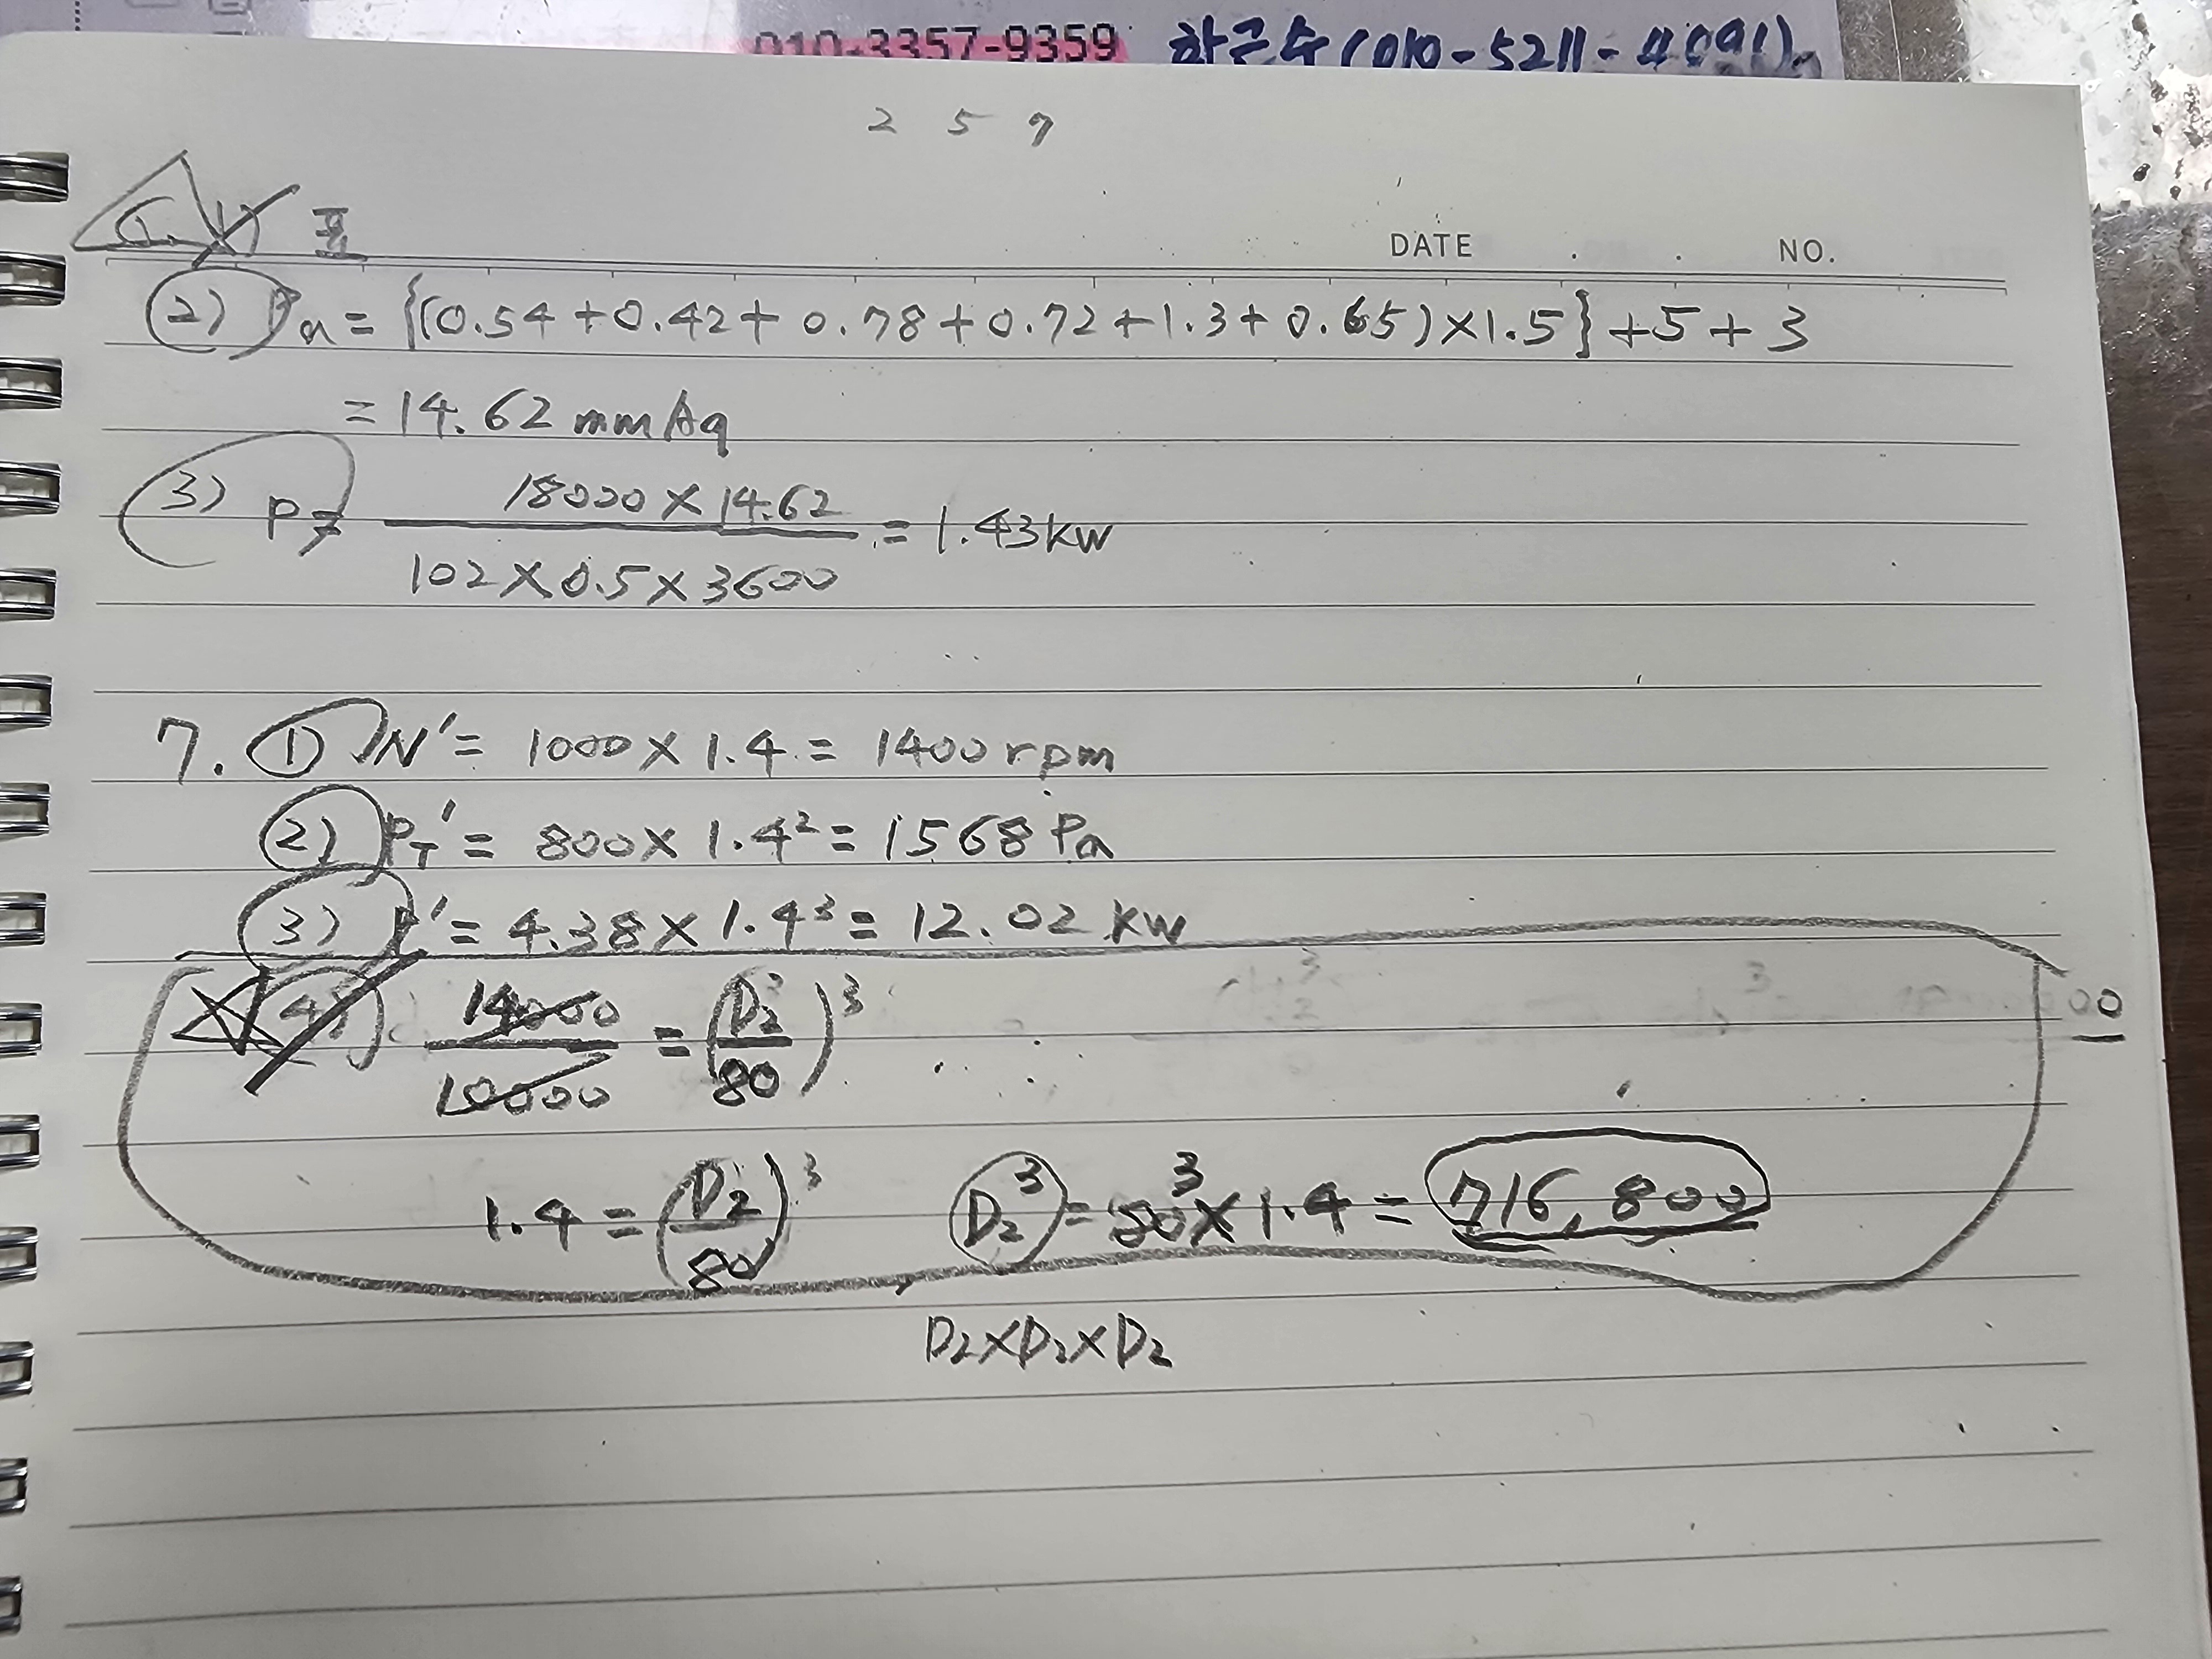 010-3357-9359 하근수(010-5211-4091).
2 5 7
6. 1) 표
DATE . . NO.
2) Pa = {(0.54+0.42+0.78+0.72+1.3+0.65)×1.5}+5+3
= 14.62 mmAq
3) P = 18000 × 14.62 / 102 × 0.5 × 3600 = 1.43 kW
7. 1) N' = 1000 × 1.4 = 1400 rpm
2) PT' = 800 × 1.4² = 1568 Pa
3) P' = 4.38 × 1.4³ = 12.02 kW
4) 14000 / 10000 = (D2 / 80)³
00
1.4 = (D2 / 80)³ D2³ = 80³ × 1.4 = 716,800
D2×D2×D2